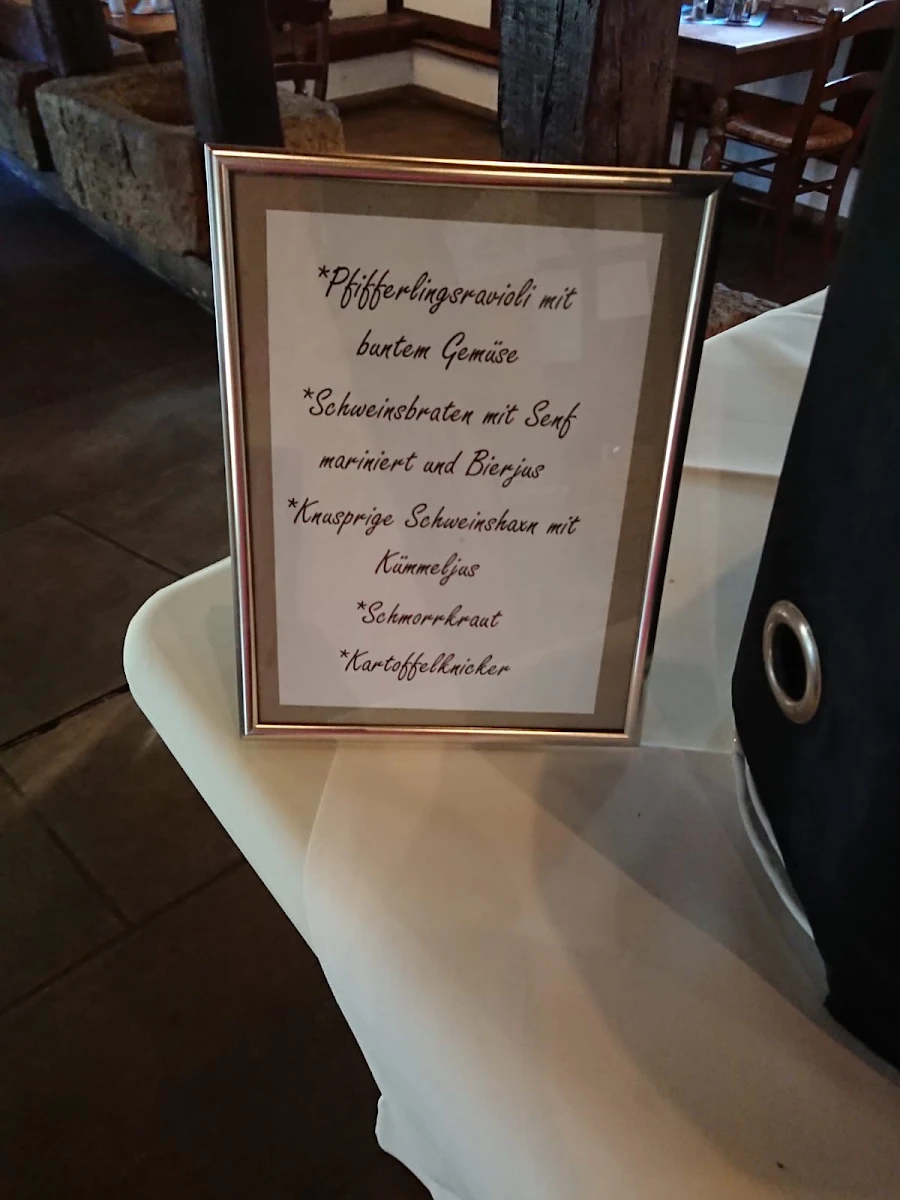 *Pfifferlingsravioli mit
buntem Gemüse
*Schweinsbraten mit Senf
mariniert und Bierjus
*Knusprige Schweinshaxn mit
Kümmeljus
*Schmorrkraut
*Kartoffelknicker